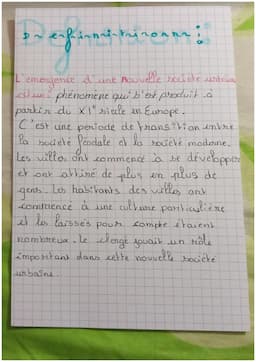 Definitionn :
L'emergence d'une nouvelle société urbaine
est un phénomène qui s'est produit à
partir du XIe siècle en Europe.
C'est une période de transition entre
la société féodale et la société moderne.
Les villes ont commencé à se développer
et ont attiré de plus en plus de
gens. Les habitants des villes ont
commencé à une culture particulière
et les laissés pour compte étaient
nombreux. Le clergé jouait un rôle
important dans cette nouvelle société
urbaine.